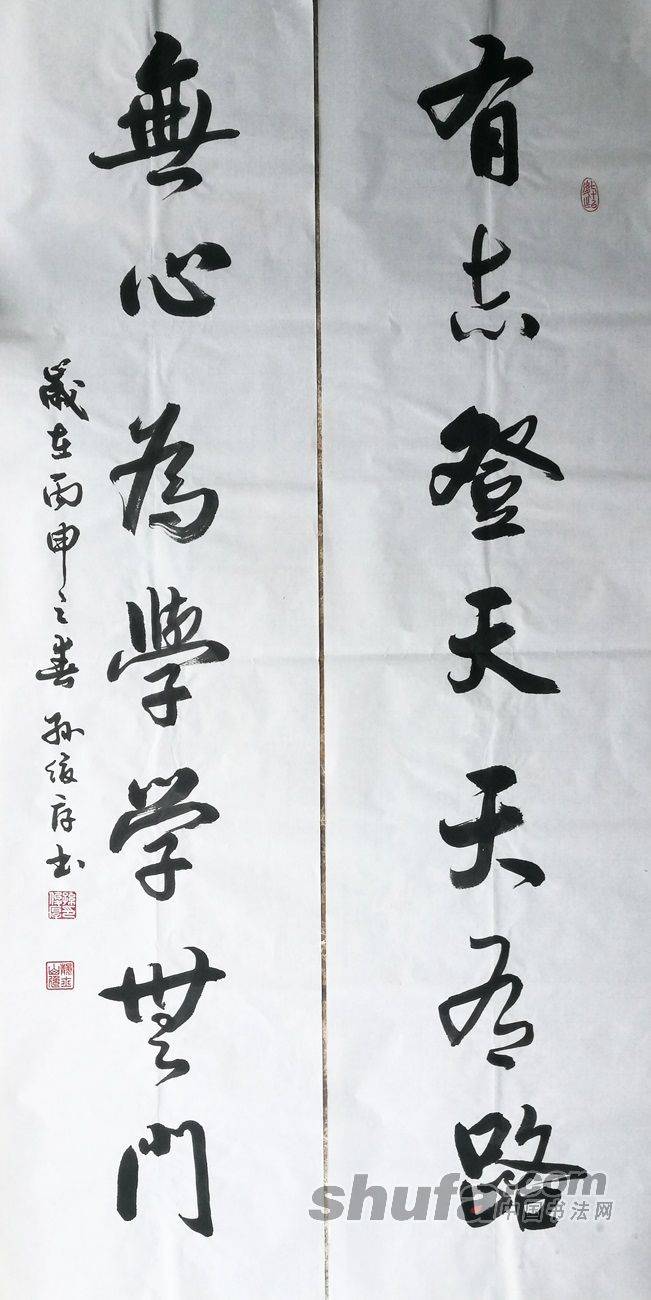 有志登天天有路
無心為學學無門
歲在丙申之春 孙俊存书
shufa.com
中国书法网